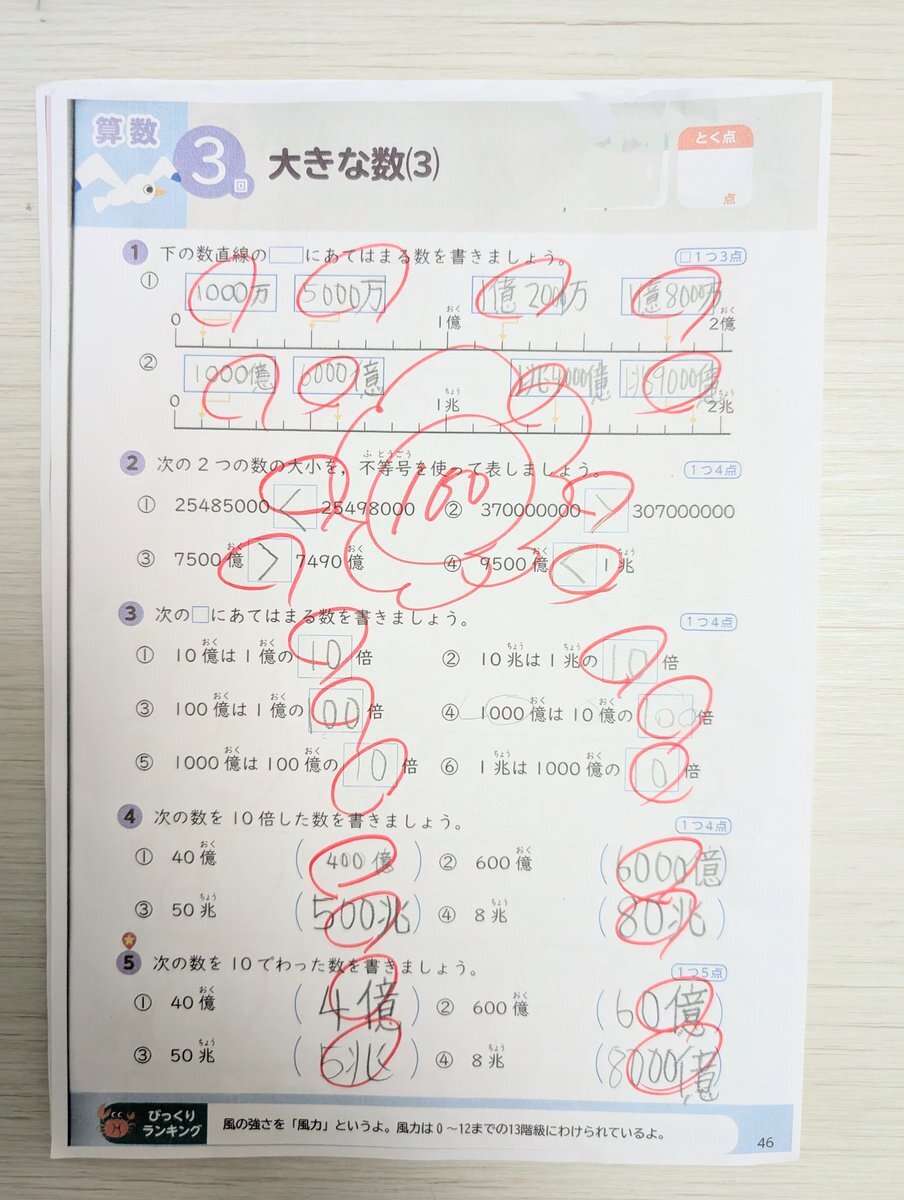 算数
3回
大きな数(3)
とく点
点
1 下の数直線の□にあてはまる数を書きましょう。 □1つ3点
① 1000万 5000万 1億2000万 1億8000万
0 1億 2億
② 1000億 6000億 1兆4000億 1兆9000億
0 1兆 2兆
2 次の2つの数の大小を,不等号を使って表しましょう。 1つ4点
① 25485000 < 25498000 ② 370000000 > 307000000
③ 7500億 > 7490億 ④ 9500億 < 1兆
100
3 次の□にあてはまる数を書きましょう。 1つ4点
① 10億は1億の 10 倍 ② 10兆は1兆の 10 倍
③ 100億は1億の 100 倍 ④ 1000億は10億の 100 倍
⑤ 1000億は100億の 10 倍 ⑥ 1兆は1000億の 10 倍
4 次の数を10倍した数を書きましょう。 1つ4点
① 40億 (400億) ② 600億 (6000億)
③ 50兆 (500兆) ④ 8兆 (80兆)
5 次の数を10でわった数を書きましょう。 1つ5点
① 40億 (4億) ② 600億 (60億)
③ 50兆 (5兆) ④ 8兆 (8000億)
びっくりランキング
風の強さを「風力」というよ。風力は0~12までの13階級にわけられているよ。
46